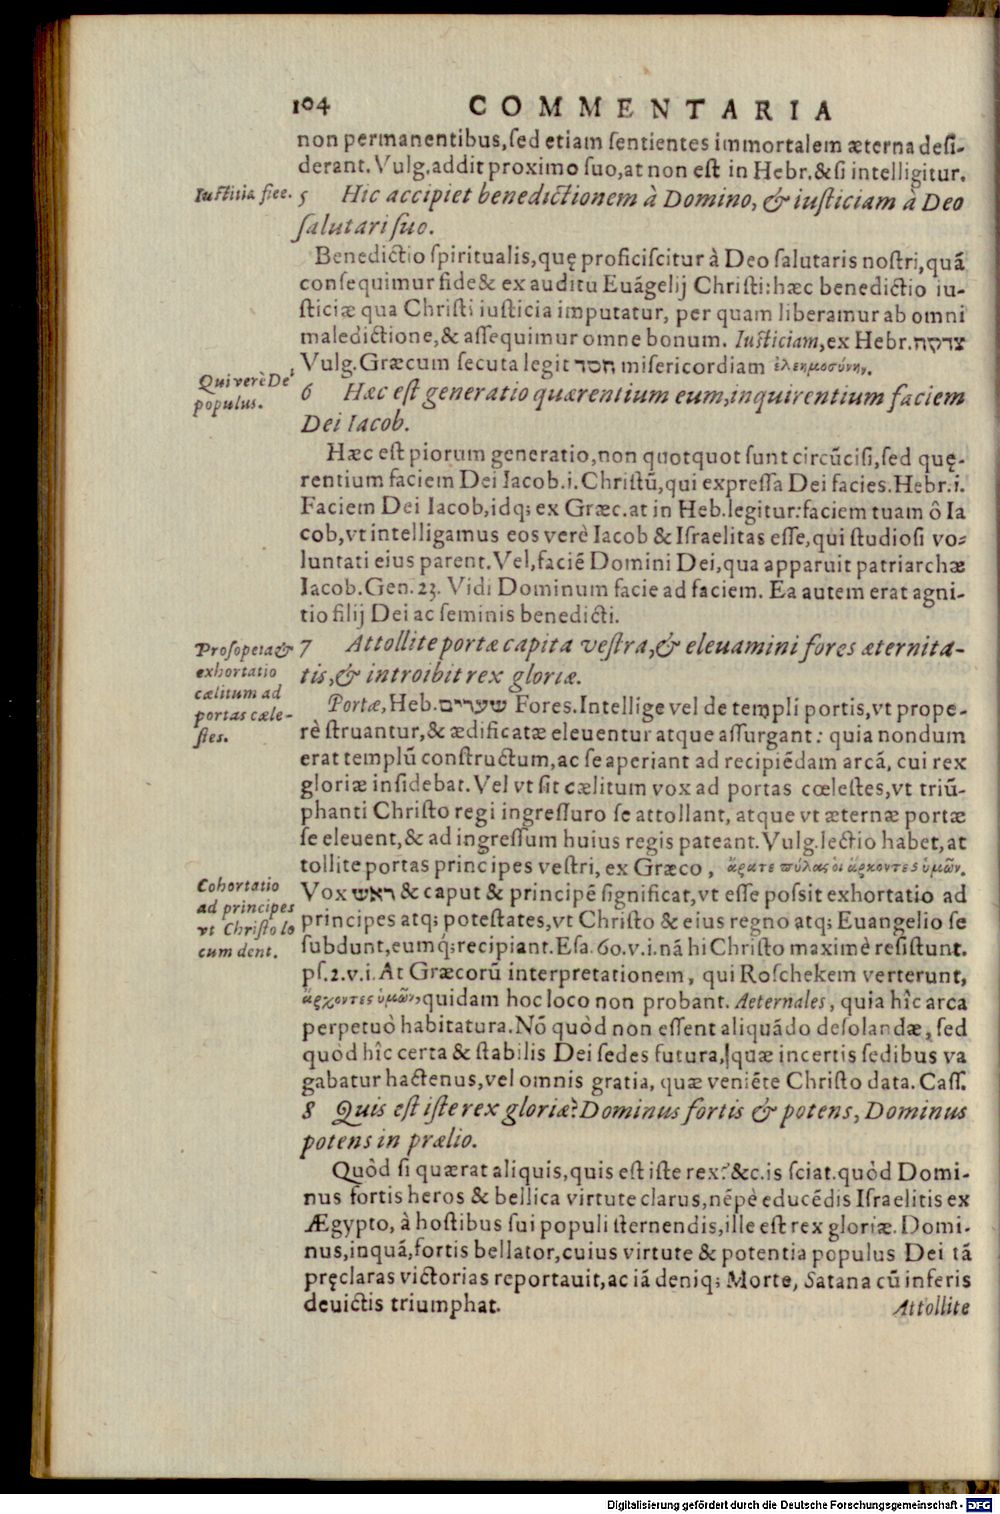 104 COMMENTARIA
non permanentibus,sed etiam sentientes immortalem æterna desi-
derant.Vulg.addit proximo suo,at non est in Hebr.&si intelligitur.
Iustitia fiee.
5 Hic accipiet benedictionem à Domino, & iusticiam à Deo
salutari suo.
Benedictio spiritualis,quę proficiscitur à Deo salutaris nostri,quā
consequimur fide& ex auditu Euāgelij Christi:hæc benedictio iu-
sticiæ qua Christi iusticia imputatur, per quam liberamur ab omni
maledictione,& assequimur omne bonum. Iusticiam,ex Hebr.צדקה
Vulg.Græcum secuta legit חסד misericordiam ἐλεημοσύνην.
Qui verè De'
populus.
6 Hæc est generatio quærentium eum,inquirentium faciem
Dei Iacob.
Hæc est piorum generatio,non quotquot sunt circūcisi,sed quę-
rentium faciem Dei Iacob.i.Christū,qui expressa Dei facies.Hebr.i.
Faciem Dei Iacob,idq; ex Græc.at in Heb.legitur:faciem tuam ô Ia
cob,vt intelligamus eos verè Iacob & Israelitas esse,qui studiosi vo-
luntati eius parent.Vel,faciē Domini Dei,qua apparuit patriarchæ
Iacob.Gen.23. Vidi Dominum facie ad faciem. Ea autem erat agni-
tio filij Dei ac seminis benedicti.
Prosopeia&
exhortatio
cælitum ad
portas cæle-
stes.
7 Attollite portæ capita vestra,& eleuamini fores æternita-
tis,& introibit rex gloriæ.
Portæ,Heb.שערים Fores.Intellige vel de templi portis,vt prope-
rè struantur,& ædificatæ eleuentur atque assurgant: quia nondum
erat templū constructum,ac se aperiant ad recipiēdam arcā, cui rex
gloriæ insidebat.Vel vt sit cælitum vox ad portas cœlestes,vt triū-
phanti Christo regi ingressuro se attollant, atque vt æternæ portæ
se eleuent,& ad ingressum huius regis pateant.Vulg.lectio habet,at
tollite portas principes vestri, ex Græco, ἄρατε πύλας οἱ ἄρχοντες ὑμῶν.
Cohortatio
ad principes
vt Christo lo
cum dent.
Vox ראש & caput & principē significat,vt esse possit exhortatio ad
principes atq; potestates,vt Christo & eius regno atq; Euangelio se
subdunt,eumq́;recipiant.Esa.60.v.i.nā hi Christo maximè resistunt.
ps.2.v.i.At Græcorū interpretationem, qui Roschekem verterunt,
ἄρχοντες ὑμῶν,quidam hoc loco non probant. Aeternales, quia hîc arca
perpetuò habitatura.Nō quòd non essent aliquādo desolandæ, sed
quòd hîc certa & stabilis Dei sedes futura,quæ incertis sedibus va
gabatur hactenus,vel omnis gratia, quæ veniēte Christo data. Cass.
8 Quis est iste rex gloriæ?Dominus fortis & potens, Dominus
potens in prælio.
Quòd si quærat aliquis,quis est iste rex?&c.is sciat.quòd Domi-
nus fortis heros & bellica virtute clarus,nēpè educēdis Israelitis ex
Ægypto, à hostibus sui populi sternendis,ille est rex gloriæ.Domi-
nus,inquā,fortis bellator,cuius virtute & potentia populus Dei tā
pręclaras victorias reportauit,ac iā deniq; Morte, Satana cū inferis
deuictis triumphat.
Attollite
Digitalisierung gefördert durch die Deutsche Forschungsgemeinschaft - DFG